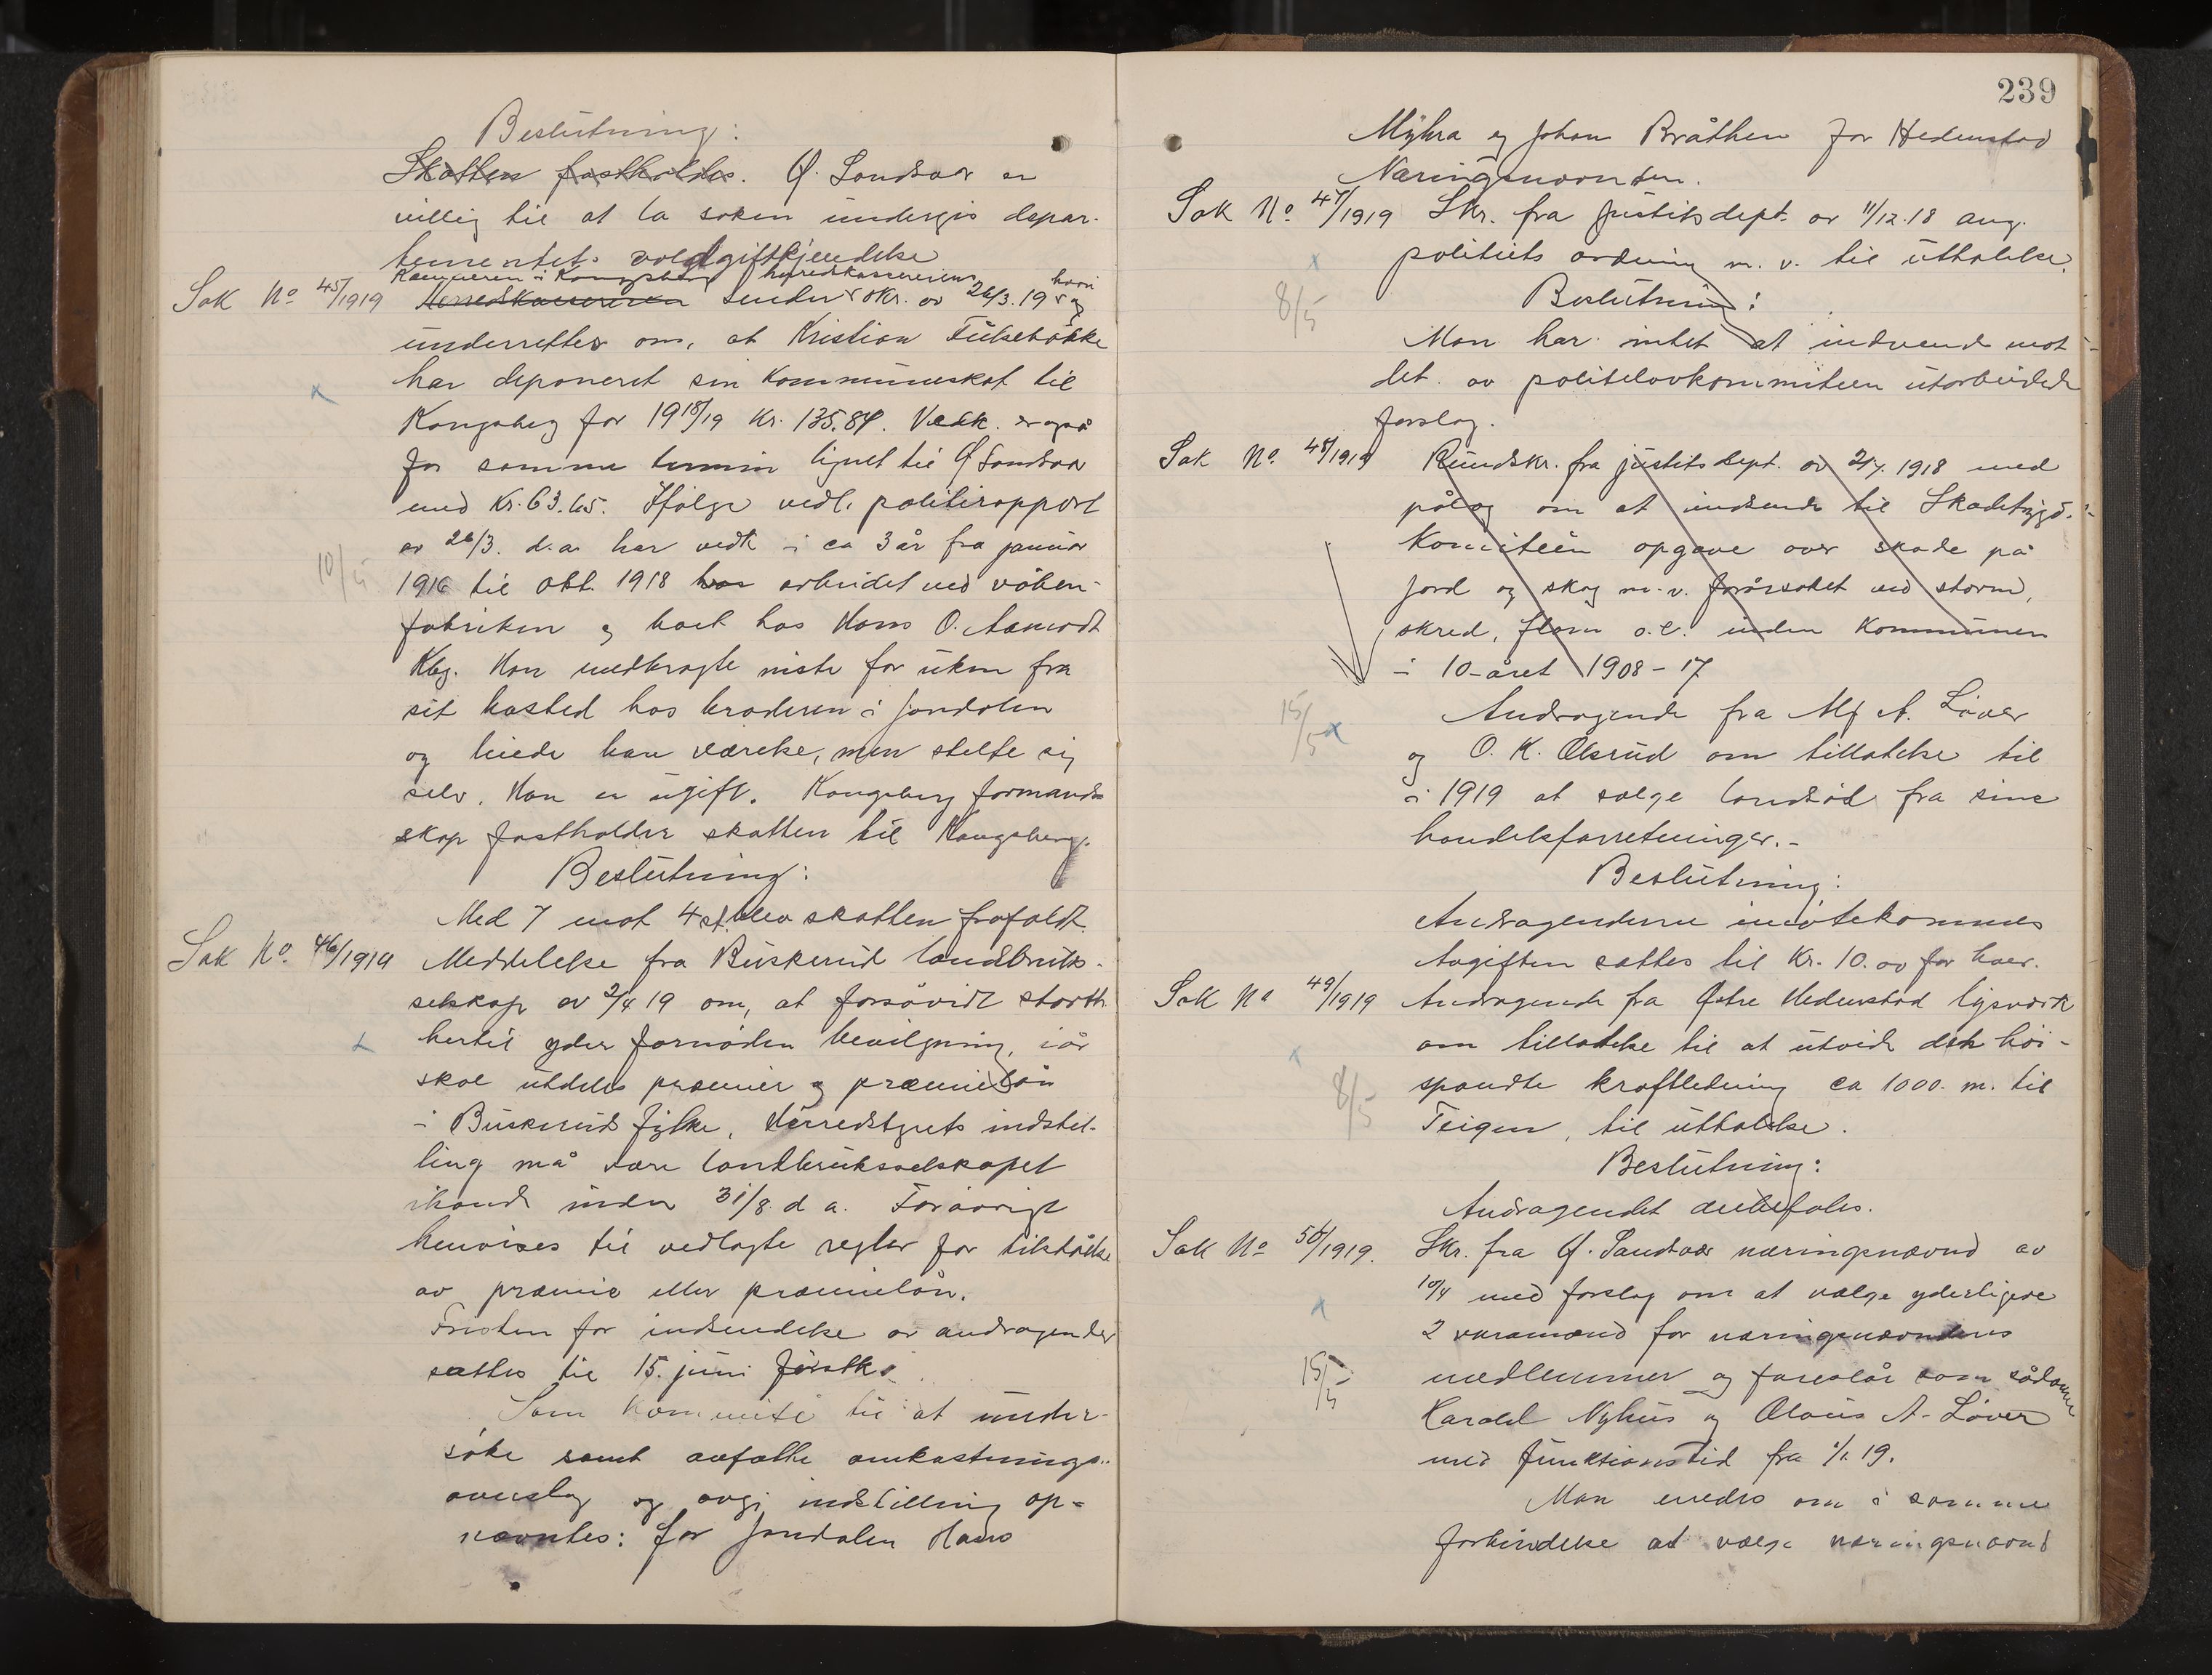 Beslutning:
Skatten fastholdes. Ø. Sandsvær er
villig til at la saken undergis depar-
tementets voldgiftkjendelse
Kæmneren i Kongsberg herredskassereren hvori
Sak No 45/1919 Herredskassereren sender skr. av 26/3. 19 og
underretter om, at Kristian Fulsebakke
har deponeret sin kommuneskat til
Kongsberg for 1918/19 kr. 135.84. Vedk. er også
for samme termin lignet til Ø Sandsvær
med kr. 63.65. Ifølge vedl. politirapport
av 26/3. d.a. har vedk i ca 3 år fra januar
10/5
1916 til okt. 1918 has arbeidet ved våben-
fabriken og boet hos Hans O. Aamodt
Kbg. Han medbragte niste for uken fra
sit bosted hos broderen i Jondalen
og leiede kun værelse, men stelte sig
selv. Han er ugift. Kongsberg formand-
skap fastholder skatten til Kongsberg.
Beslutning:
Med 7 mot 4 st. blev skatten frafaldt.
Sak No. 46/1919 Meddelelse fra Buskerud landbruks-
selskap av 2/4 19 om, at forsåvidt storth.
hertil yder fornøden bevilgning, iår
skal utdeles præmier og præmielån
i Buskerud fylke. Herredstyrets indstil-
ling må være landbruksselskapet
ihænde inden 31/8. d a. Forøvrigt
henvises til vedlagte regler for tilståelse
av præmie eller præmielån.
Fristen for indsendelse av andragender
sættes til 15. juni førstk.
Som komite til at under-
søke samt avfatte omkostnings-
overslag og avgi indstilling op-
nævntes: for Jondalen Hans
239
Myhra og Johan Bråthen for Hedenstad
Næringsnævnden.
Sak No. 47/1919 Skr. fra Justitsdept. av 11/12.18 ang.
politiets ordning m. v. til uttalelse.
8/5
Beslutning:
Man har intet at indvende mot
det av politilovkommiteen utarbeidede
forslag.
Sak No. 48/1919 Rundskr. fra justitsdept. av 2/7. 1918 med
pålæg om at indsende til Skadebygd.-
Komiteèn opgave over skade på
jord og skog m.v. forårsaket ved storm,
skred, flom o.l. inden kommunen
i 10-året 1908-17
15/5
Andragende fra Alf A. Løver
og O. K. Ølsrud om tillatelse til
i 1919 at sælge landsøl fra sine
handelsforretninger.-
Beslutning:
Andragenderne imøtekommes
Avgiften sættes til kr. 10.00 for hver.
Sak No 49/1919 Andragende fra Østre Hedenstad lysverk
om tillatelse til at utvide den høi-
spændte kraftledning ca 1000. m. til
8/5
Teigen, til uttalelse.
Beslutning:
Andragendet anbefales.
Sak No 50/1919. Skr. fra Ø. Sandsvær næringsnævnd av
10/4 med forslag om at vælge yderligere
2 varamænd for næringsnævndens
15/5
medlemmer og foreslår som sådanne
Harald Nyhus og Olaus A. Løver
med funktionstid fra 1/1 19.
Man enedes om i samme
forbindelse at vælge næringsnævnd